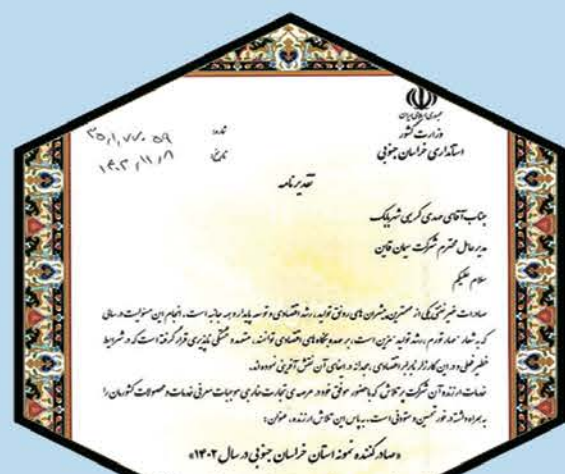 جمهوری اسلامی ایران
وزارت کشور
استانداری خراسان جنوبی
شماره: ۳۵,۱,۷۷۰۵۹
تاریخ: ۱۴۰۲/۱۱/۸
تقدیرنامه
جناب آقای مهدی کریمی شهربابک
مدیرعامل محترم شرکت سیمان قاین
سلام علیکم
صادرات غیرنفتی یکی از مهمترین پیشران های رونق تولید، رشد اقتصادی و توسعه پایدار و همه جانبه است. انجام این مسئولیت در سالی
که به شعار "مهار تورم، رشد تولید" مزین است، بر عهده بنگاه های اقتصادی توانمند، متعهد و خستگی ناپذیری قرار گرفته است که در شرایط
خطیر فعلی و در این کارزار نابرابر اقتصادی، مجدانه در ایفای آن نقش آفرینی نموده اند.
خدمات ارزنده آن شرکت پرتلاش که با حضور موفق خود در عرصه ی تجارت خارجی موجبات معرفی خدمات و محصولات کشورمان را
به همراه داشته در خور تحسین و ستودنی است. به پاس این تلاش ارزنده، عنوان:
«صادرکننده نمونه استان خراسان جنوبی در سال ۱۴۰۲»